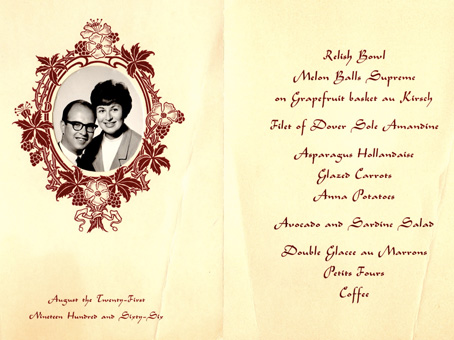 August the Twenty-First
Nineteen Hundred and Sixty-Six
Relish Bowl
Melon Balls Supreme
on Grapefruit basket au Kirsch
Filet of Dover Sole Amandine
Asparagus Hollandaise
Glazed Carrots
Anna Potatoes
Avocado and Sardine Salad
Double Glacee au Marrons
Petits Fours
Coffee